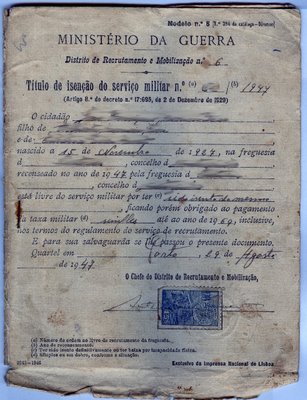 Modelo n.º 6
MINISTÉRIO DA GUERRA
Distrito de Recrutamento e Mobilização n.º 6
Título de isenção do serviço militar n.º (a) (b) 1947
(Artigo 8.º do decreto n.º 17:695, de 2 de Dezembro de 1929)
O cidadão
filho de
e de
nascido a 15 de Novembro de 1927, na freguesia
d , concelho d
recenseado no ano de 1947 pela freguesia d
, concelho d
está livre do serviço militar por ter (c)
, ficando porém obrigado ao pagamento
da taxa militar (d) até ao ano de 1960, inclusive,
nos termos do regulamento do serviço de recrutamento.
E para sua salvaguarda se passou o presente documento.
Quartel em Porto, 29 de Agosto
de 1947
O Chefe do Distrito de Recrutamento e Mobilização,
(a) Número de ordem no livro de recrutamento da freguesia.
(b) Ano de recenseamento.
(c) Ter sido isento definitivamente ou ter baixa por incapacidade física.
(d) Simples ou em dobro, conforme a situação.
Exclusivo da Imprensa Nacional de Lisboa